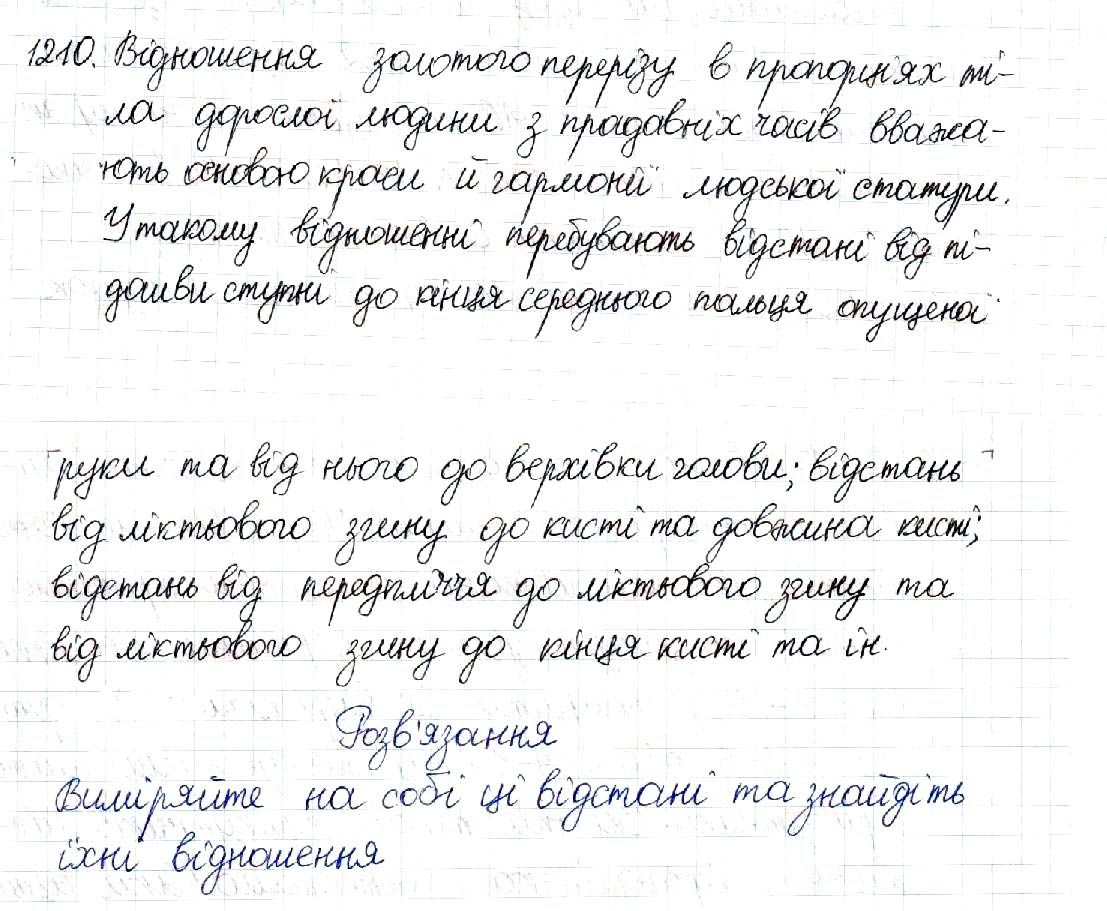 1210. Відношення золотого перерізу в пропорціях ті-
ла дорослої людини з прадавніх часів вважа-
ють основою краси й гармонії людської статури.
У такому відношенні перебувають відстані від пі-
дошви ступні до кінця середнього пальця опущеної
руки та від нього до верхівки голови; відстань
від ліктьового згину до кисті та довжина кисті;
відстань від передпліччя до ліктьового згину та
від ліктьового згину до кінця кисті та ін.
Розв'язання
Виміряйте на собі ці відстані та знайдіть
їхні відношення